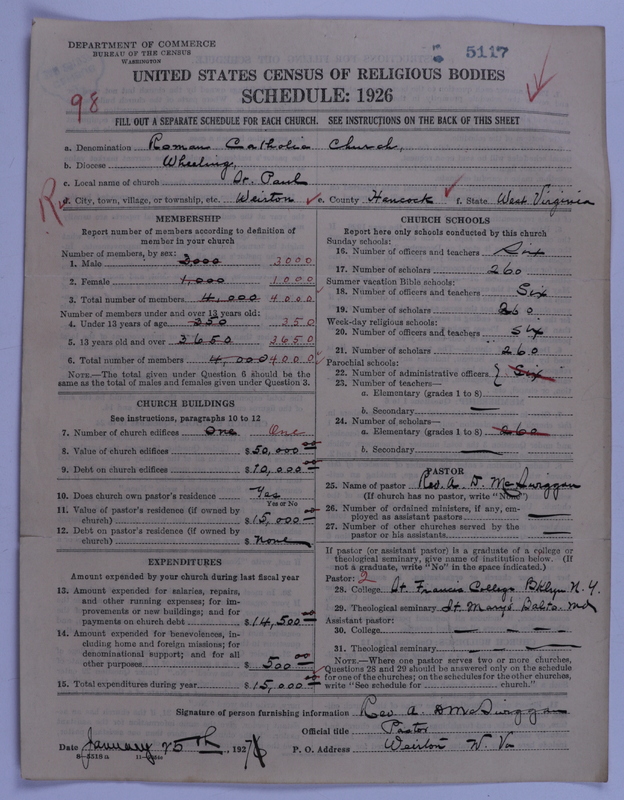 DEPARTMENT OF COMMERCE
BUREAU OF THE CENSUS
WASHINGTON
5117
UNITED STATES CENSUS OF RELIGIOUS BODIES
SCHEDULE: 1926
98
FILL OUT A SEPARATE SCHEDULE FOR EACH CHURCH. SEE INSTRUCTIONS ON THE BACK OF THIS SHEET
a. Denomination Roman Catholic Church,
b. Diocese Wheeling,
c. Local name of church St. Paul
d. City, town, village, or township, etc. Weirton e. County Hancock f. State West Virginia
MEMBERSHIP
Report number of members according to definition of
member in your church
Number of members, by sex:
1. Male 3000 3000
2. Female 1,000 1000
3. Total number of members 4,000 4000
Number of members under and over 13 years old:
4. Under 13 years of age 350 350
5. 13 years old and over 3650 3650
6. Total number of members 4,000 4000
NOTE.—The total given under Question 6 should be the
same as the total of males and females given under Question 3.
CHURCH BUILDINGS
See instructions, paragraphs 10 to 12
7. Number of church edifices One One
8. Value of church edifices $50,000 00
9. Debt on church edifices $10,000 00
10. Does church own pastor's residence Yes
Yes or No
11. Value of pastor's residence (if owned by
church) $15,000 00
12. Debt on pastor's residence (if owned by
church) $ None
EXPENDITURES
Amount expended by your church during last fiscal year
13. Amount expended for salaries, repairs,
and other running expenses; for im-
provements or new buildings; and for
payments on church debt $14,500 00
14. Amount expended for benevolences, in-
cluding home and foreign missions; for
denominational support; and for all
other purposes $500 00
15. Total expenditures during year $15,000 00
CHURCH SCHOOLS
Report here only schools conducted by this church
Sunday schools:
16. Number of officers and teachers Six
17. Number of scholars 260
Summer vacation Bible schools:
18. Number of officers and teachers Six
19. Number of scholars 260
Week-day religious schools:
20. Number of officers and teachers Six
21. Number of scholars 260
Parochial schools:
22. Number of administrative officers Six
23. Number of teachers—
a. Elementary (grades 1 to 8)
b. Secondary —
24. Number of scholars—
a. Elementary (grades 1 to 8) 260
b. Secondary —
PASTOR
25. Name of pastor Rev. A. D. McSwiggan
(If church has no pastor, write "No")
26. Number of ordained ministers, if any, em-
ployed as assistant pastors —
27. Number of other churches served by the
pastor or his assistants. —
If pastor (or assistant pastor) is a graduate of a college or
theological seminary, give name of institution below. (If
not a graduate, write "No" in the space indicated.)
Pastor: 2
28. College St. Francis College Bklyn N.Y.
29. Theological seminary St. Marys Balto. Md
Assistant pastor:
30. College — — —
31. Theological seminary — — —
NOTE.—Where one pastor serves two or more churches,
Questions 28 and 29 should be answered only on the schedule
for one of the churches; on the schedules for the other churches,
write "See schedule for church."
Signature of person furnishing information Rev. A. D McSwiggan
Official title Pastor
Date January 25th, 1927 P. O. Address Weirton W. Va